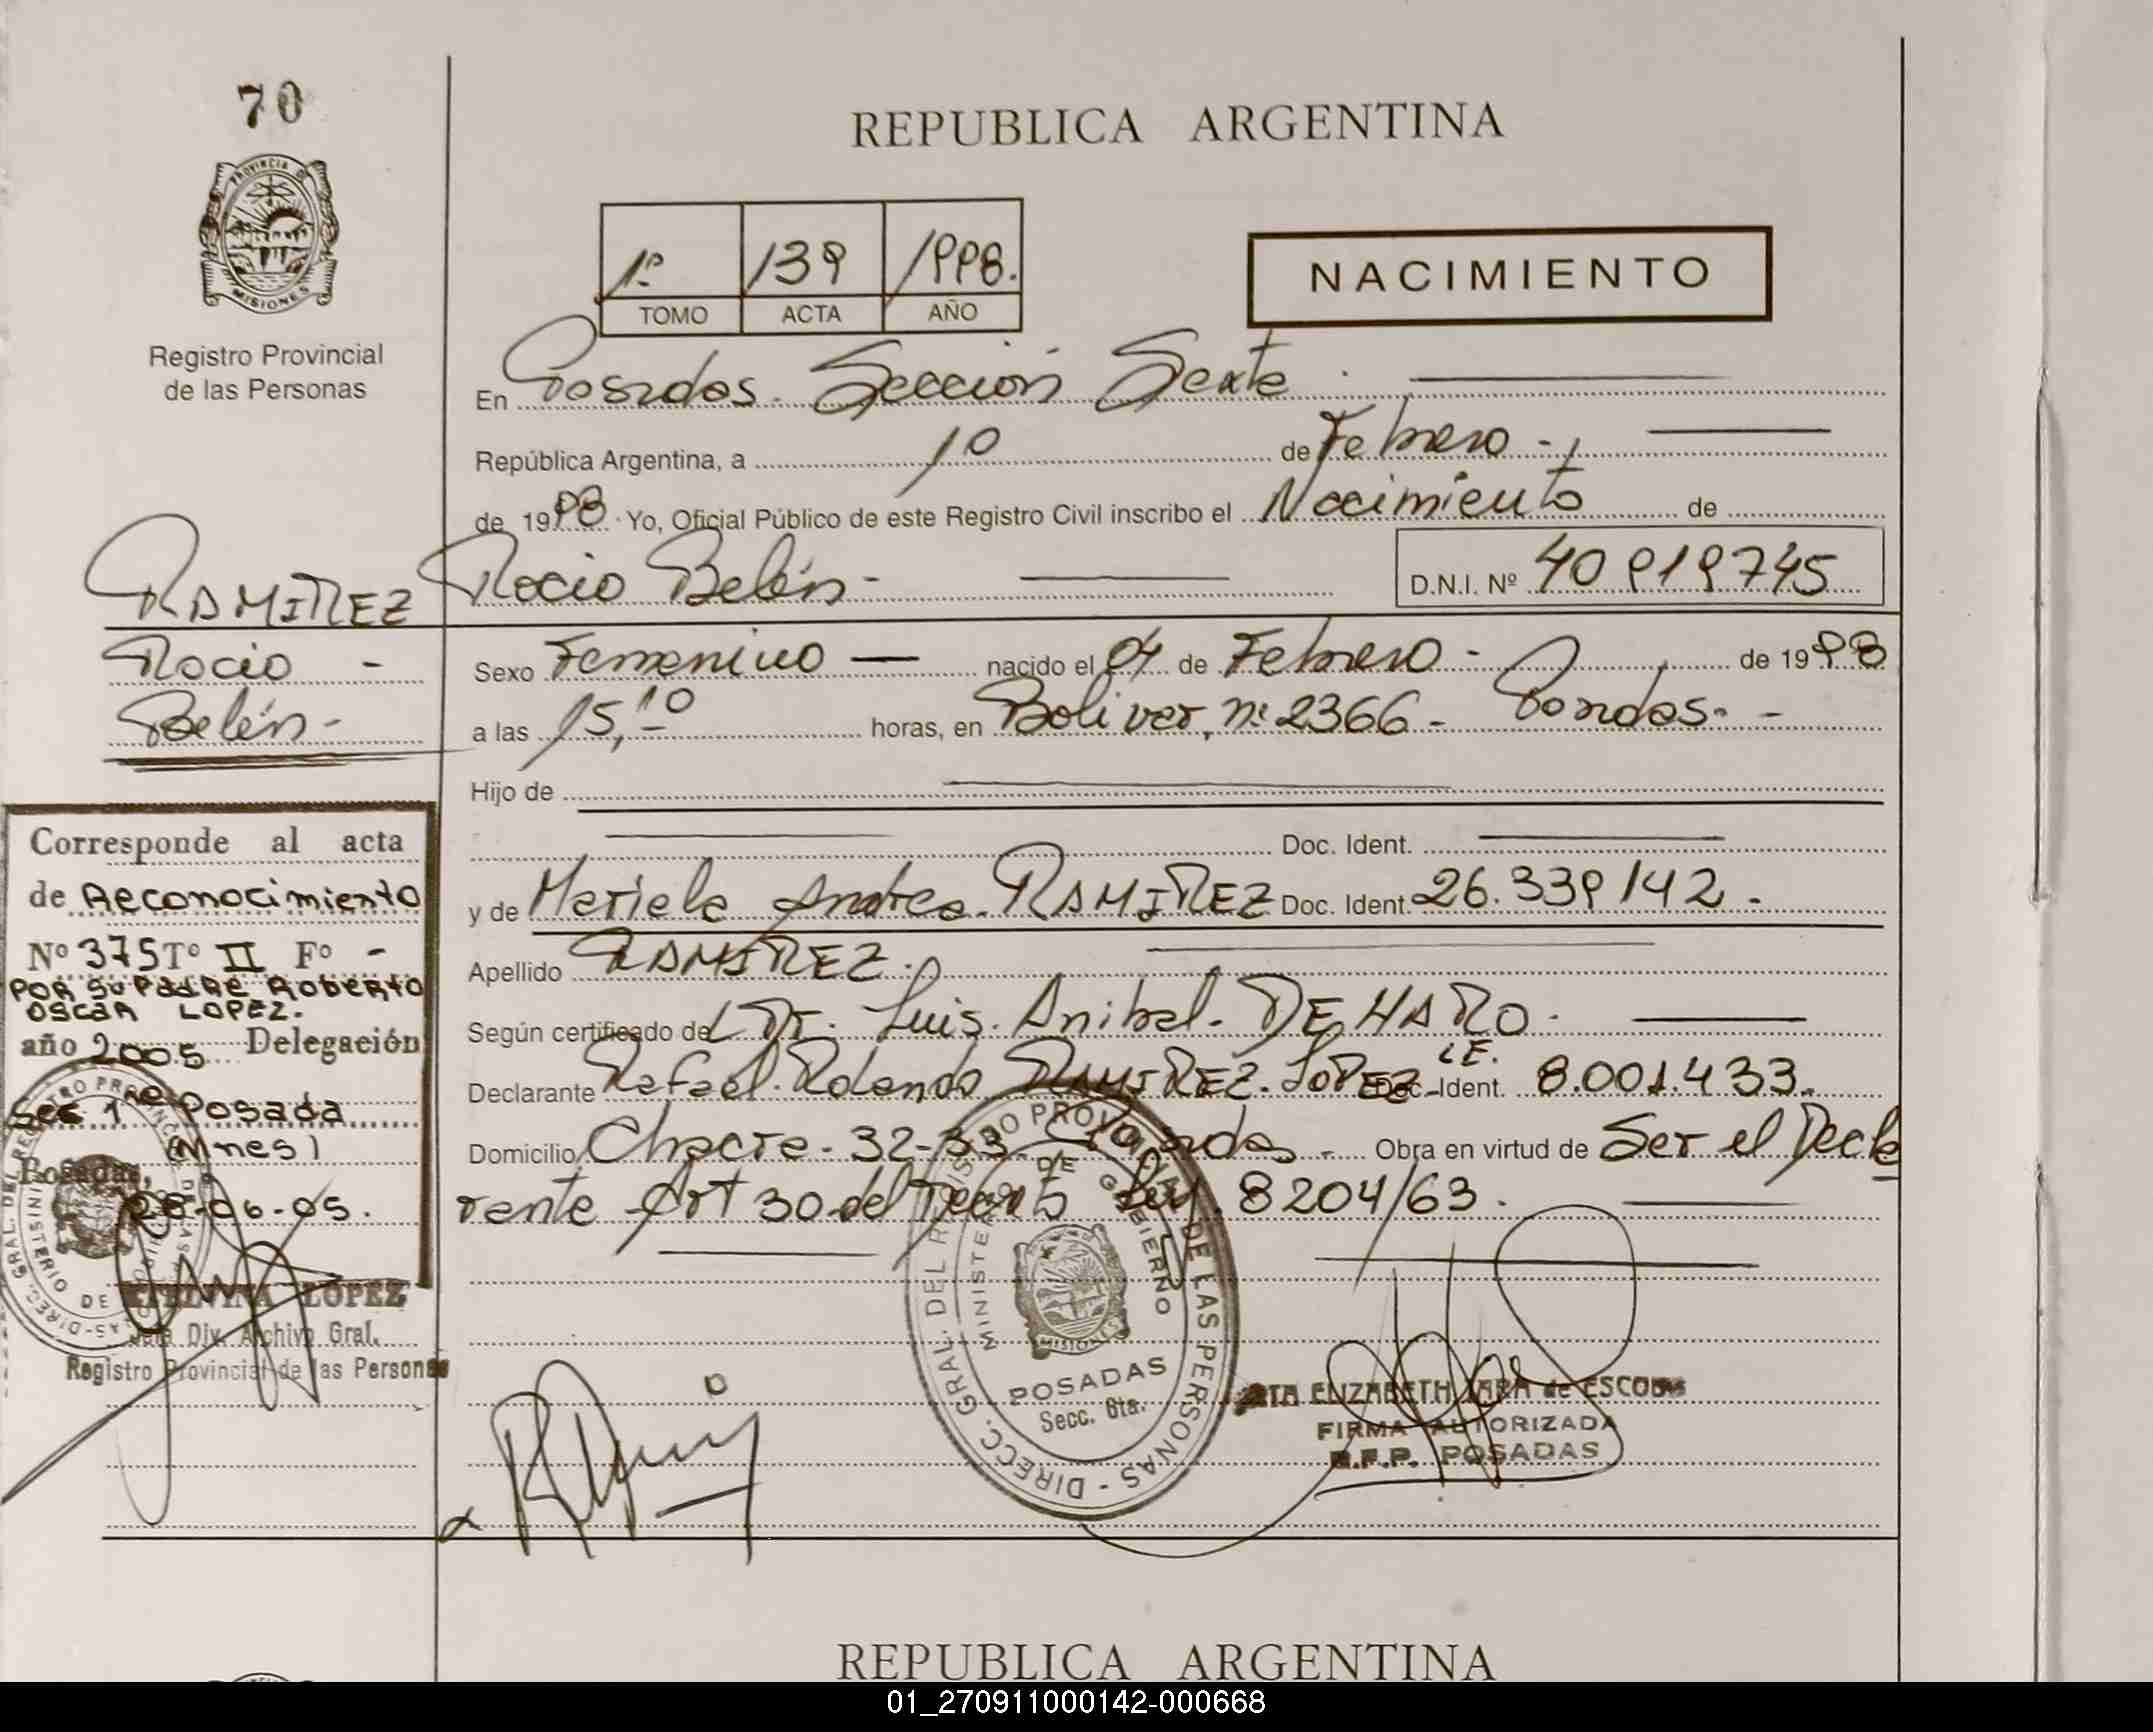 70
PROVINCIA D
MISIONES
Registro Provincial
de las Personas
REPUBLICA ARGENTINA
1º 139 1998.
TOMO ACTA AÑO
NACIMIENTO
En Posadas. Sección Sexta
República Argentina, a 10 de Febrero -
de 1998 Yo, Oficial Público de este Registro Civil inscribo el Nacimiento de
Rocio Belén - D.N.I. Nº 40919745
RAMIREZ
Rocio -
Belén -
Sexo Femenino — nacido el 04 de Febrero - de 1998
a las 15,10 horas, en Bolivar, nº 2366 - Posadas. -
Hijo de
Doc. Ident.
y de Mariela Andrea RAMIREZ Doc. Ident. 26.339142 -
Apellido RAMIREZ.
Según certificado del Dr. Luis. Anibal. DE HARO.
Declarante Rafael. Rolando RAMIREZ. LOPEZ Doc. Ident. L.E. 8.001.433.
Domicilio Chacra - 32-33 Posadas - Obra en virtud de Ser el Decla
rante Art 30 del Decreto Ley 8204/63.
Corresponde al acta
de Reconocimiento
Nº 375 Tº II Fº -
POR SU PADRE ROBERTO
OSCAR LOPEZ.
año 2005 Delegación
Sec 1ra Posada
(Mnes)
Posadas,
28-06-05.
LOPEZ
Jefa Div. Archivo Gral.
Registro Provincial de las Personas
DIRECC. GRAL. DEL REGISTRO PROVINCIAL DE LAS PERSONAS
MINISTERIO DE GOBIERNO
MISIONES
POSADAS
Secc. 6ta.
ELIZABETH JARA de ESCOBAR
FIRMA AUTORIZADA
R.P.P. POSADAS
REPUBLICA ARGENTINA
01_270911000142-000668